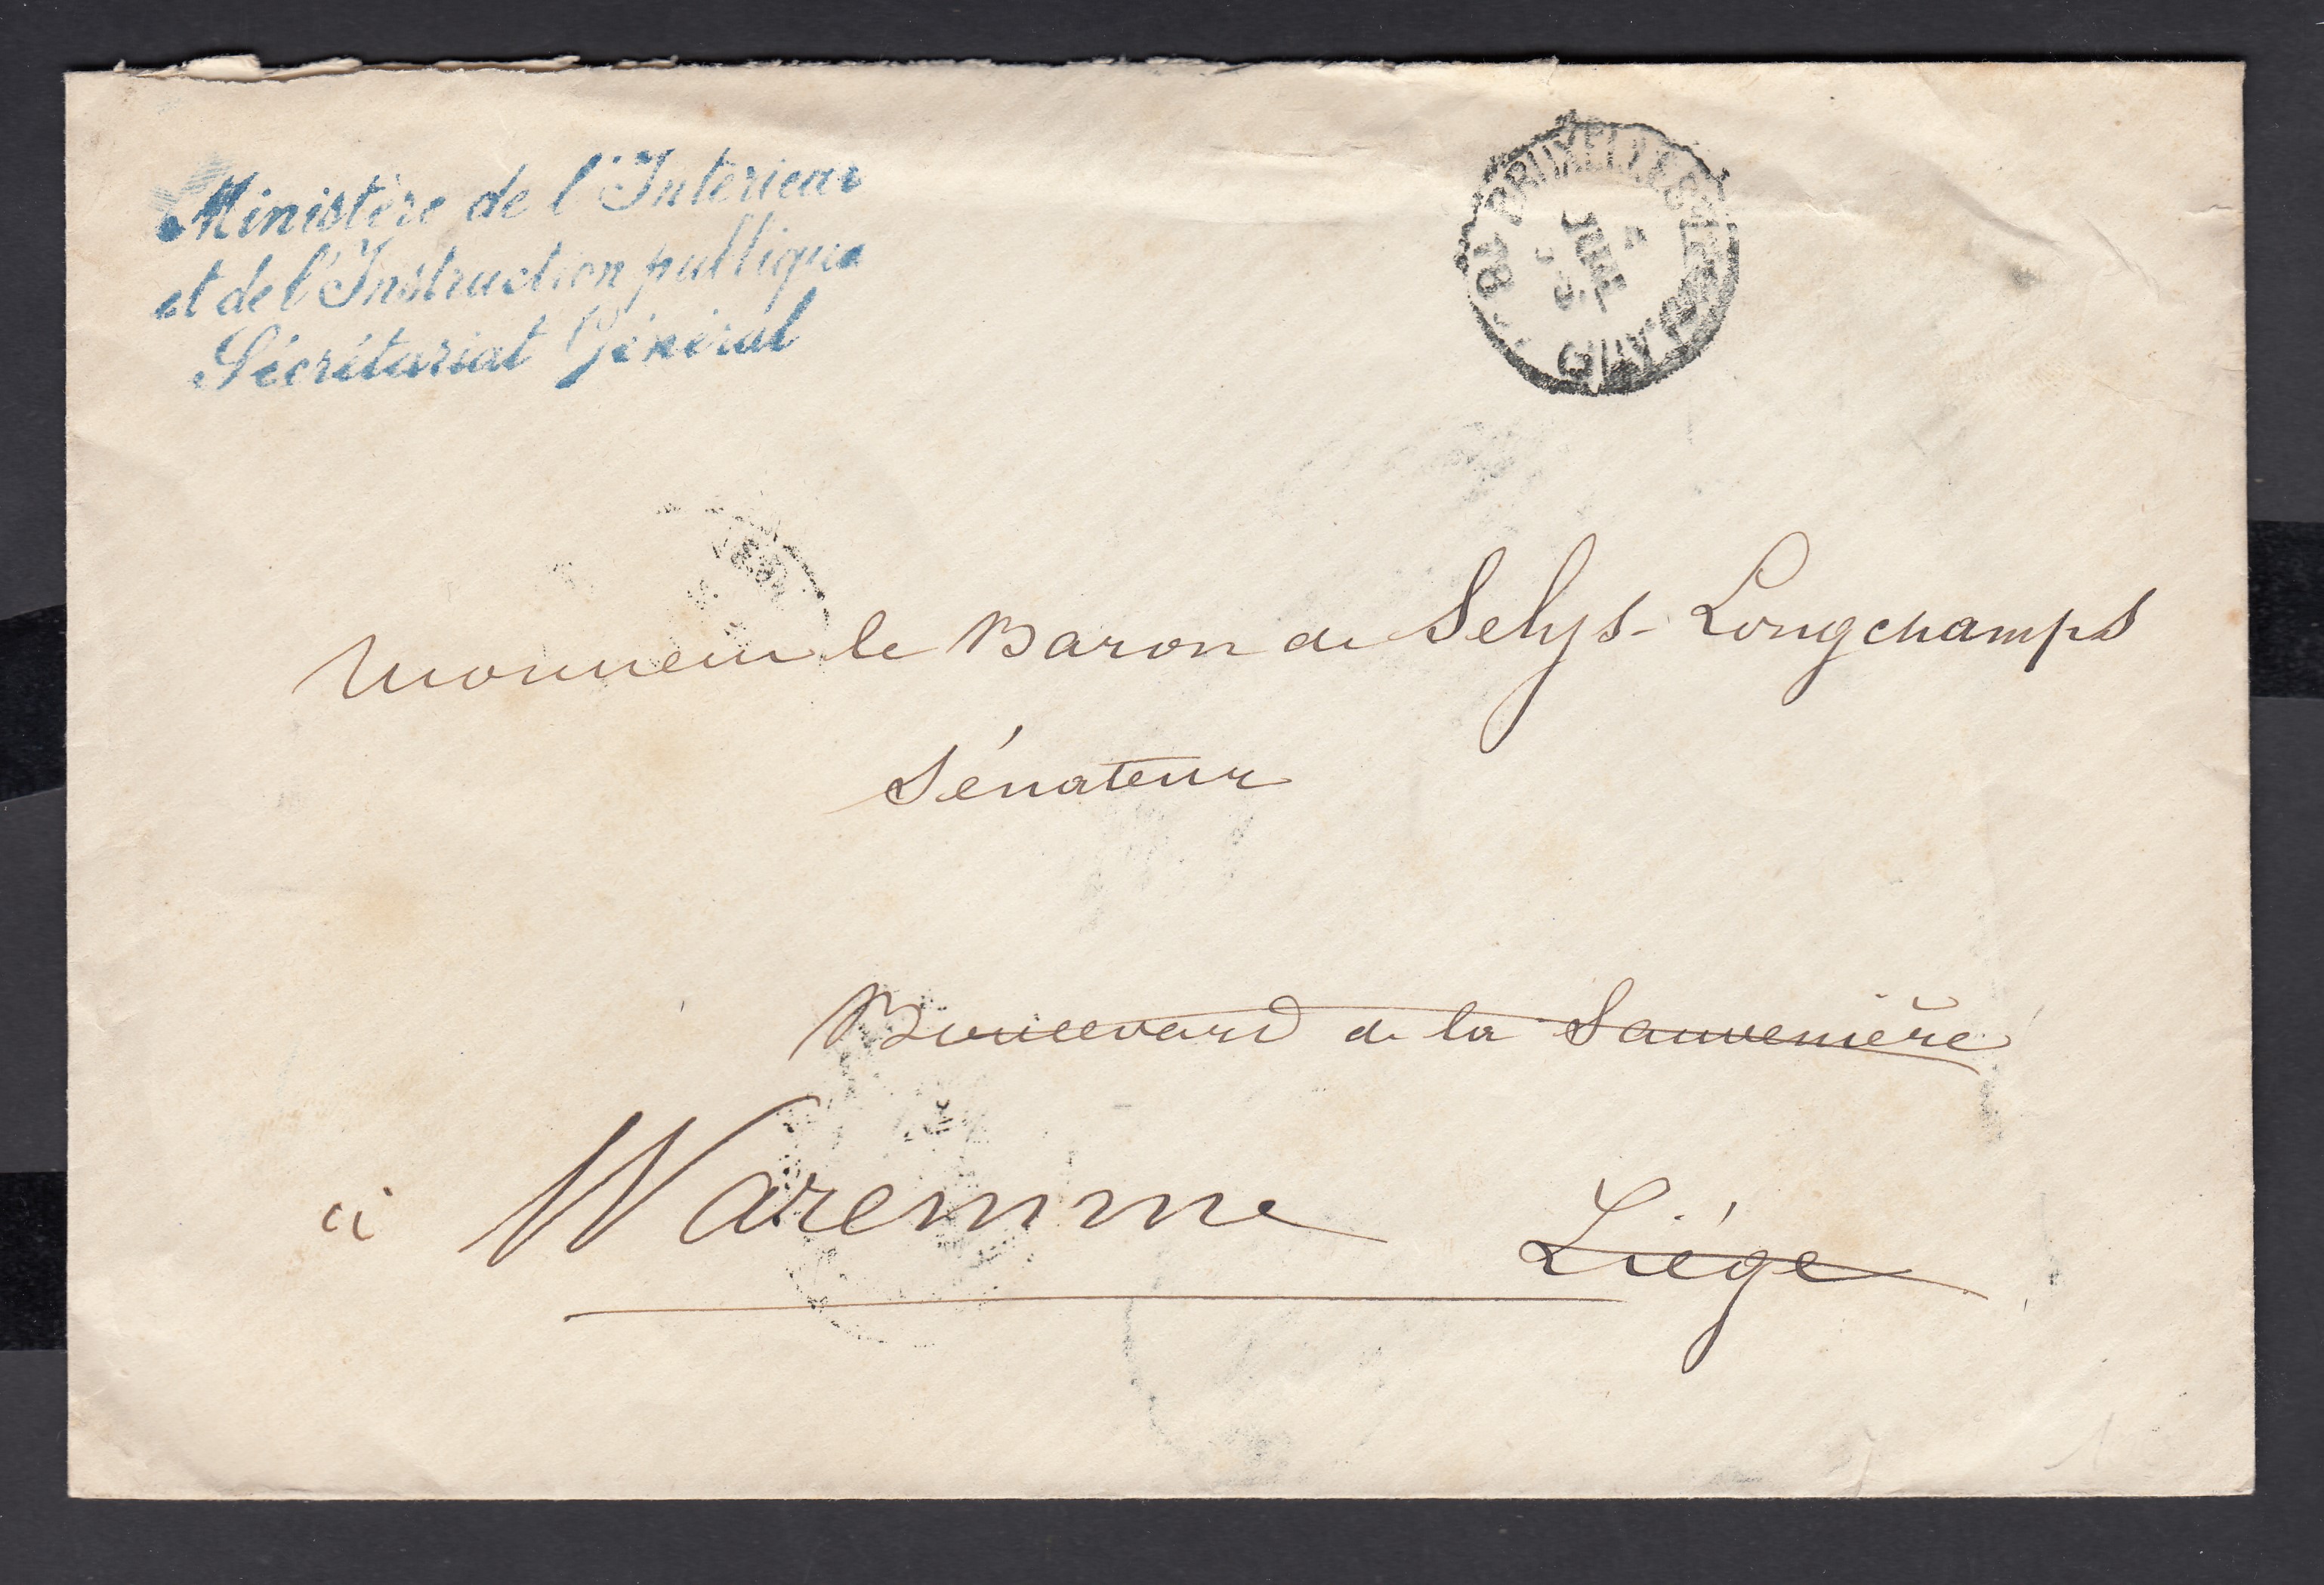 Ministère de l'Intérieur
et de l'Instruction publique
Sécrétariat Général
BRUXELLES
JUIL
Monsieur le Baron de Selys-Longchamps
Sénateur
Boulevard de la Sauvenière
à Waremme Liége